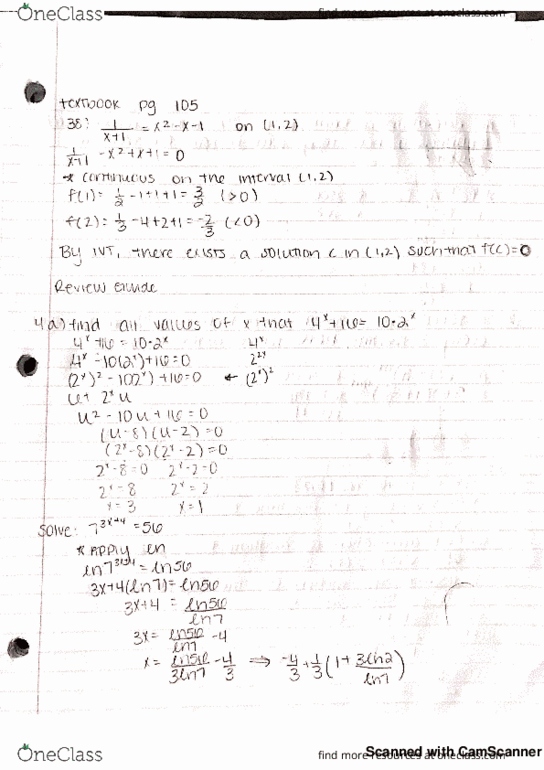 OneClass
find more resources at oneclass.com
textbook pg 105
38) 1/(x+1) = x² - x - 1 on (1,2)
1/(x+1) - x² + x + 1 = 0
* continuous on the interval (1,2)
f(1) = 1/2 - 1 + 1 + 1 = 3/2 (>0)
f(2) = 1/3 - 4 + 2 + 1 = -2/3 (<0)
By IVT, there exists a solution c in (1,2) such that f(c) = 0
Review Guide
4 a) find all values of x that 4ˣ + 16 = 10·2ˣ
4ˣ + 16 = 10·2ˣ 4ˣ
4ˣ - 10(2ˣ) + 16 = 0 2²ˣ
(2ˣ)² - 10(2ˣ) + 16 = 0 ← (2ˣ)²
2ˣ u
u² - 10u + 16 = 0
(u-8)(u-2) = 0
(2ˣ-8)(2ˣ-2) = 0
2ˣ-8 = 0 2ˣ-2 = 0
2ˣ = 8 2ˣ = 2
x = 3 x = 1
Solve: 7³ˣ⁺⁴ = 56
* Apply ln
ln7³ˣ⁺⁴ = ln56
3x+4(ln7) = ln56
3x+4 = ln56/ln7
3x = ln56/ln7 - 4
x = ln56/3ln7 - 4/3 ⇒ -4/3 + 1/3(1 + 3ln2/ln7)
OneClass
find more resources at oneclass.com
Scanned with CamScanner